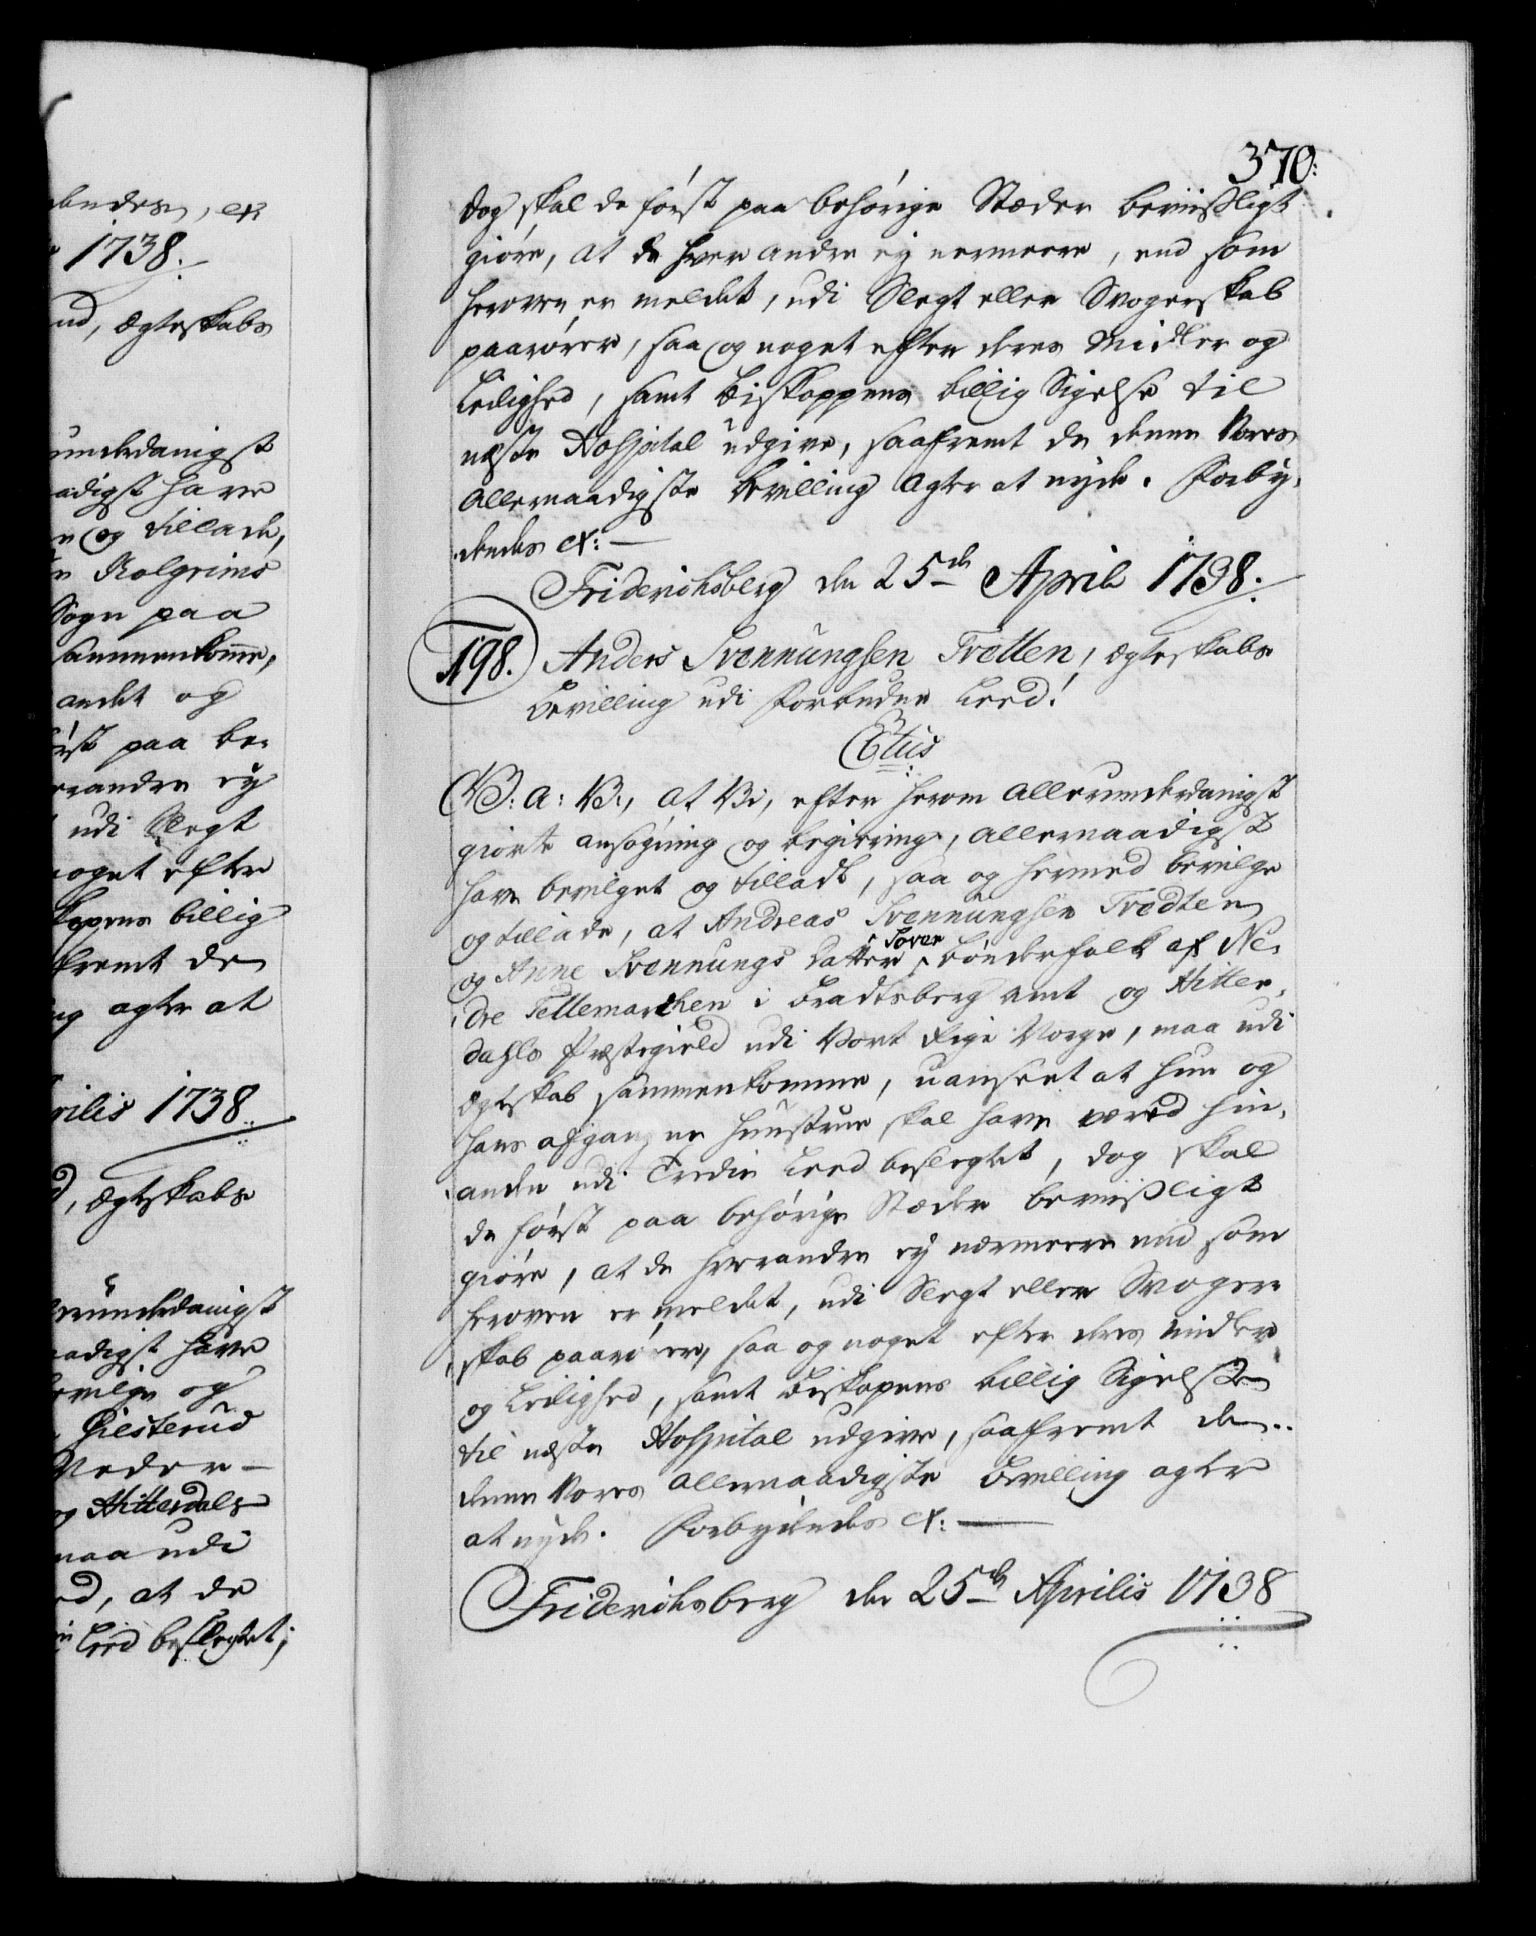 benders, etc
1738.
ud, Ægteskabs
underdanigst
aadigst have
n og tillade,
n Kolgrims
Sogn paa
sammenkomme,
andet og
først paa be-
verandre ey
udi Slegt
noget efter
skopens billig
fremt de
ng agter at
rilis 1738.
d, Ægteskabs
erunderdanigst
naadigst have
bevilge og
Giesterud
Neder-
og Hitterdals
maa udi
ed, at de
Leed beslegtet;
370.
dog skal de først paa behørige Stæder beviisligt
giøre, at de hver andre ey nermere, end som
heroven er meldet, udi Slegt eller Svogerskab
paarører, saa og noget efter deres Midler og
Leilighed, samt Biskoppens billig Sigelse til
næste Hospital udgive, saafremt de denne Vores
allernaadigste Bevilling agter at nyde. Forby-
dendes etc:
Friderichsberg den 25de April 1738.
198. Anders Svennungsen Tvetten, Ægteskabs
Bevilling udi Forbuden Leed!
Cetus
V. a: V., at Vi, efter herom allerunderdanigst
giorte ansøgning og begiering, allernaadigst
have bevilget og tilladt, saa og hermed bevilge
og tillade, at Andreas Svennungsen Tvedten
og Anne Svennungs datter Tover bønderfolk af Ne-
dre Tellemarchen i Bradtsberg amt og Hitter-
dahls Præstegield udi Vort Rige Norge, maa udi
Ægteskab sammenkomme, uanseet at hun og
hans afgangne Hustrue skal have været hin-
anden udi Tredie Leed beslegtet, dog skal
de først paa behørige Stæder bevisligt
giøre, at de hverandre ey nærmere end som
heroven er meldet, udi Slegt eller Svoger-
skab paarører, saa og noget efter deres midler
og Leilighed, samt Biskopens billig Sigelse
til næste Hospital udgive, saafremt de
denne Vores allernaadigste Bevilling agter
at nyde. Forbydendes etc:
Friderichsberg den 25de Aprilis 1738